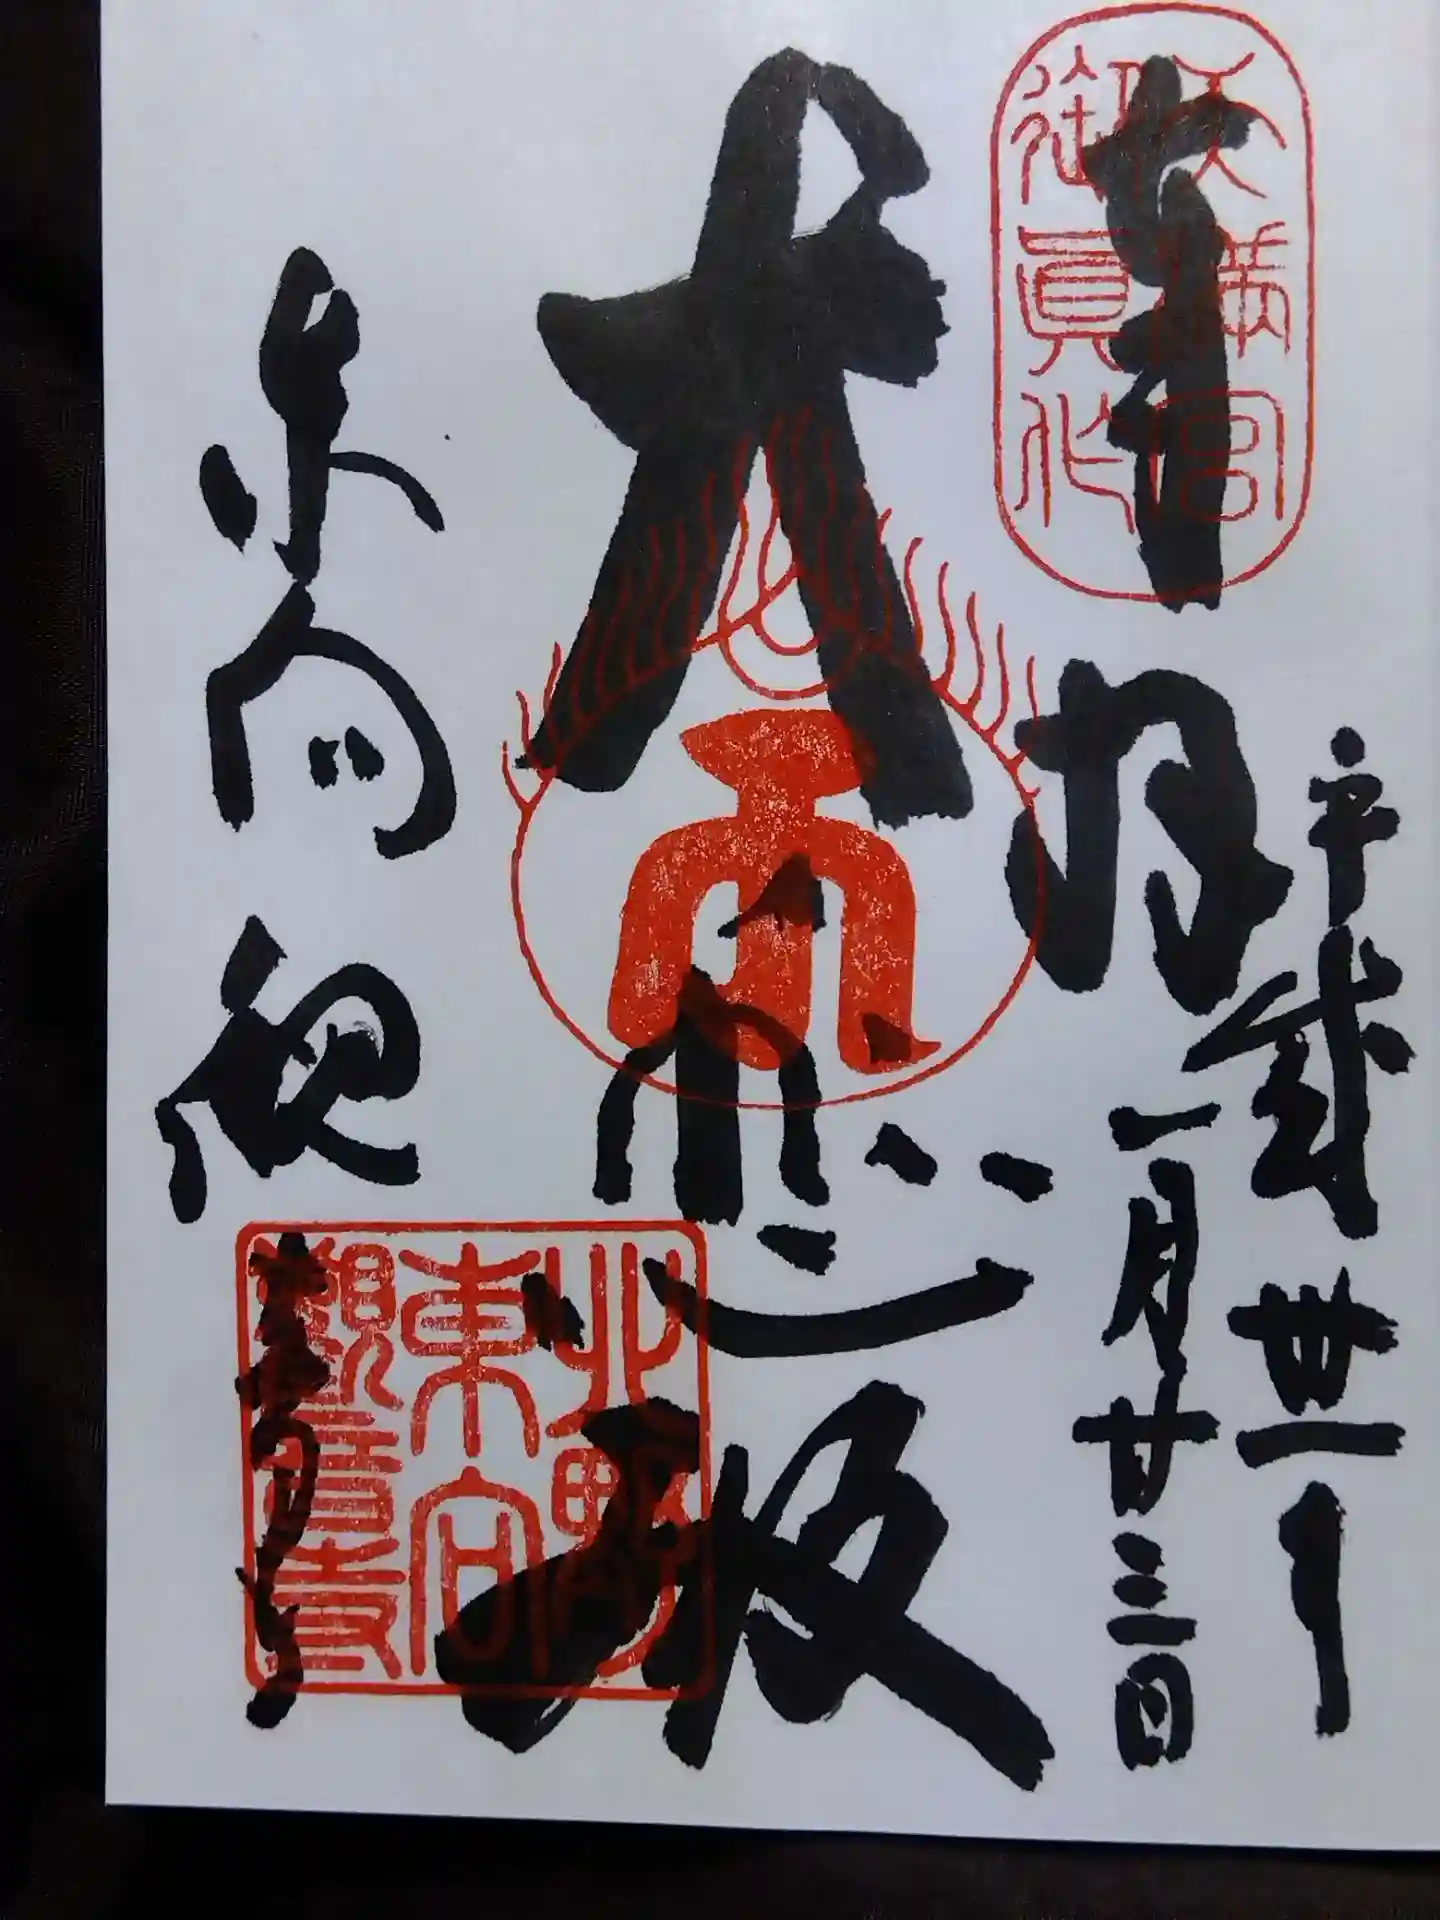 奉拝
天満宮
御真作
平成卅一丁
一月廿三日
大悲殿
北野
東向
観音寺
東向観音寺